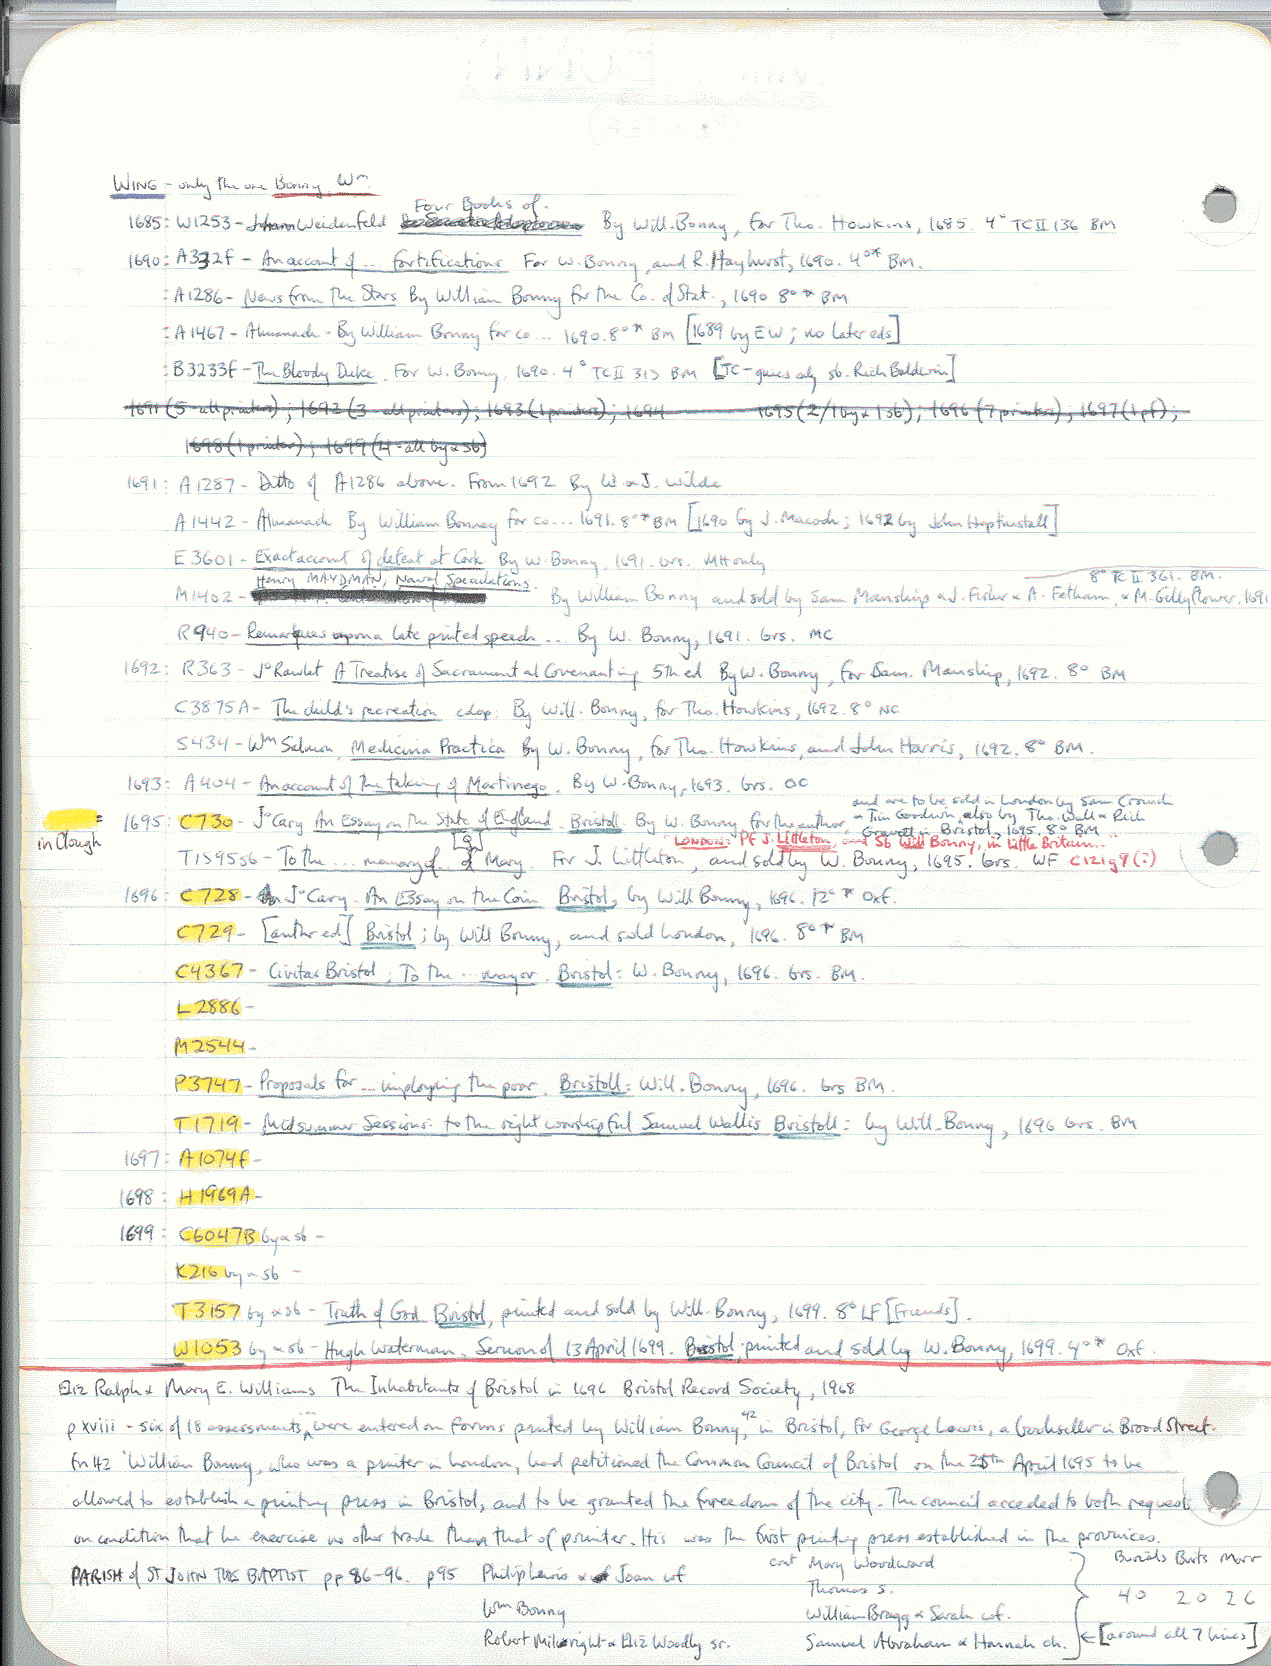 WING - only the one Bonny, Wm.
Four Books of.
1685: W1253 - Johann Weidenfeld By Will. Bonny, for Tho. Howkins, 1685. 4° TC II 136 BM
1690: A332f - An account of ... fortifications For W. Bonny, and R. Hayhurst, 1690. 4°* BM.
: A1286 - News from the Stars By William Bonny for the Co. of Stat., 1690 8°* BM
: A1467 - Almanack - By William Bonny for co ... 1690. 8°* BM [1689 by EW; no later eds]
: B3233f - The Bloody Duke. For W. Bonny, 1690. 4° TC II 313 BM [TC - gives only sb. Rich Baldwin]
1691 (5 - all printers); 1692 (3 - all printers); 1693 (1 printers); 1694 1695 (2/1 by & 1 sb); 1696 (7 printer); 1697 (1 pf);
1698 (1 printer); 1699 (4 - all by & sb)
1691: A1287 - Ditto of A1286 above. From 1692 By W & J. Wilde
A1442 - Almanack By William Bonney for co ... 1691. 8°* BM [1690 by J. Macock; 1692 by John Heptinstall]
E3601 - Exact account of defeat at Cork By W. Bonny, 1691. brs. MH only
Henry MAYDMAN, Naval Speculations. 8° TC II 361. BM.
M1402 - By William Bonny and sold by Sam Manship & J. Fisher & A. Feltham, & M. Gillyflower. 1691
R940 - Remarques upon a late printed speech ... By W. Bonny, 1691. brs. MC
1692: R363 - Jo Rawlet A Treatise of Sacramental Covenanting 5th ed By W. Bonny, for Sam. Manship, 1692. 8° BM
C3875A - The child's recreation cdop. By Will. Bonny, for Tho. Howkins, 1692. 8° NC
S434 - Wm Salmon, Medicina Practica By W. Bonny, for Tho. Howkins, and John Harris, 1692. 8° BM.
1693: A404 - An account of the taking of Martinego. By W. Bonny, 1693. brs. OC
and are to be sold in London by Sam Crouch
1695: C730 - Jo Cary An Essay on the State of England. Bristoll: By W. Bonny for the author, & Tim Goodwin, also by Tho. Wall & Rich
Gravett in Bristol, 1695. 8° BM
in Clough
LONDON: Pf J. Littleton, and Sb Will Bonny, in Little Britain.
T1595s6 - To the ... memory of Q of Mary. For J. Littleton, and sold by W. Bonny, 1695. brs. WF C121g9(:)
1696: C728 - Jo Cary - An Essay on the Coin Bristol, by Will Bonny, 1696. 12°* Oxf.
C729 - [anthr ed] Bristol; by Will Bonny, and sold London, 1696. 8°* BM
C4367 - Civitas Bristol; To the ... mayor. Bristol: W. Bonny, 1696. brs. BM.
L2886 -
M2544 -
P3747 - Proposals for ... imploying the poor. Bristoll: Will. Bonny, 1696. brs BM.
T1719 - Midsummer Sessions: to the right worshipful Samuel Wallis Bristoll: by Will. Bonny, 1696 brs. BM
1697: A1074f -
1698: H1969A -
1699: C6047B by & sb -
K216 by & sb -
T3157 by & sb - Truth of God Bristol, printed and sold by Will. Bonny, 1699. 8° LF [Friends].
W1053 by & sb - Hugh Waterman. Sermon of 13 April 1699. Bristol, printed and sold by W. Bonny, 1699. 4°* Oxf.
Eliz Ralph & Mary E. Williams The Inhabitants of Bristol in 1696 Bristol Record Society, 1968
p xviii - six of 18 assessments were entered on forms printed by William Bonny,42 in Bristol, for George Lewis, a bookseller in Broad Street.
fn 42 'William Bonny, who was a printer in London, had petitioned the Common Council of Bristol on the 25th April 1695 to be
allowed to establish a printing press in Bristol, and to be granted the freedom of the city. The council acceded to both request
on condition that he exercise no other trade than that of printer. His was the first printing press established in the provinces.
PARISH of ST JOHN THE BAPTIST pp 86-96. p95 Philip Lewis & Joan wf cont Mary Woodward Burials Births Marr
Thomas s. 40 20 26
Wm Bonny William Bragg & Sarah wf.
Robert Millwright & Eliz Woodly sr. Samuel Abraham & Hannah ch. ← [around all 7 lines]